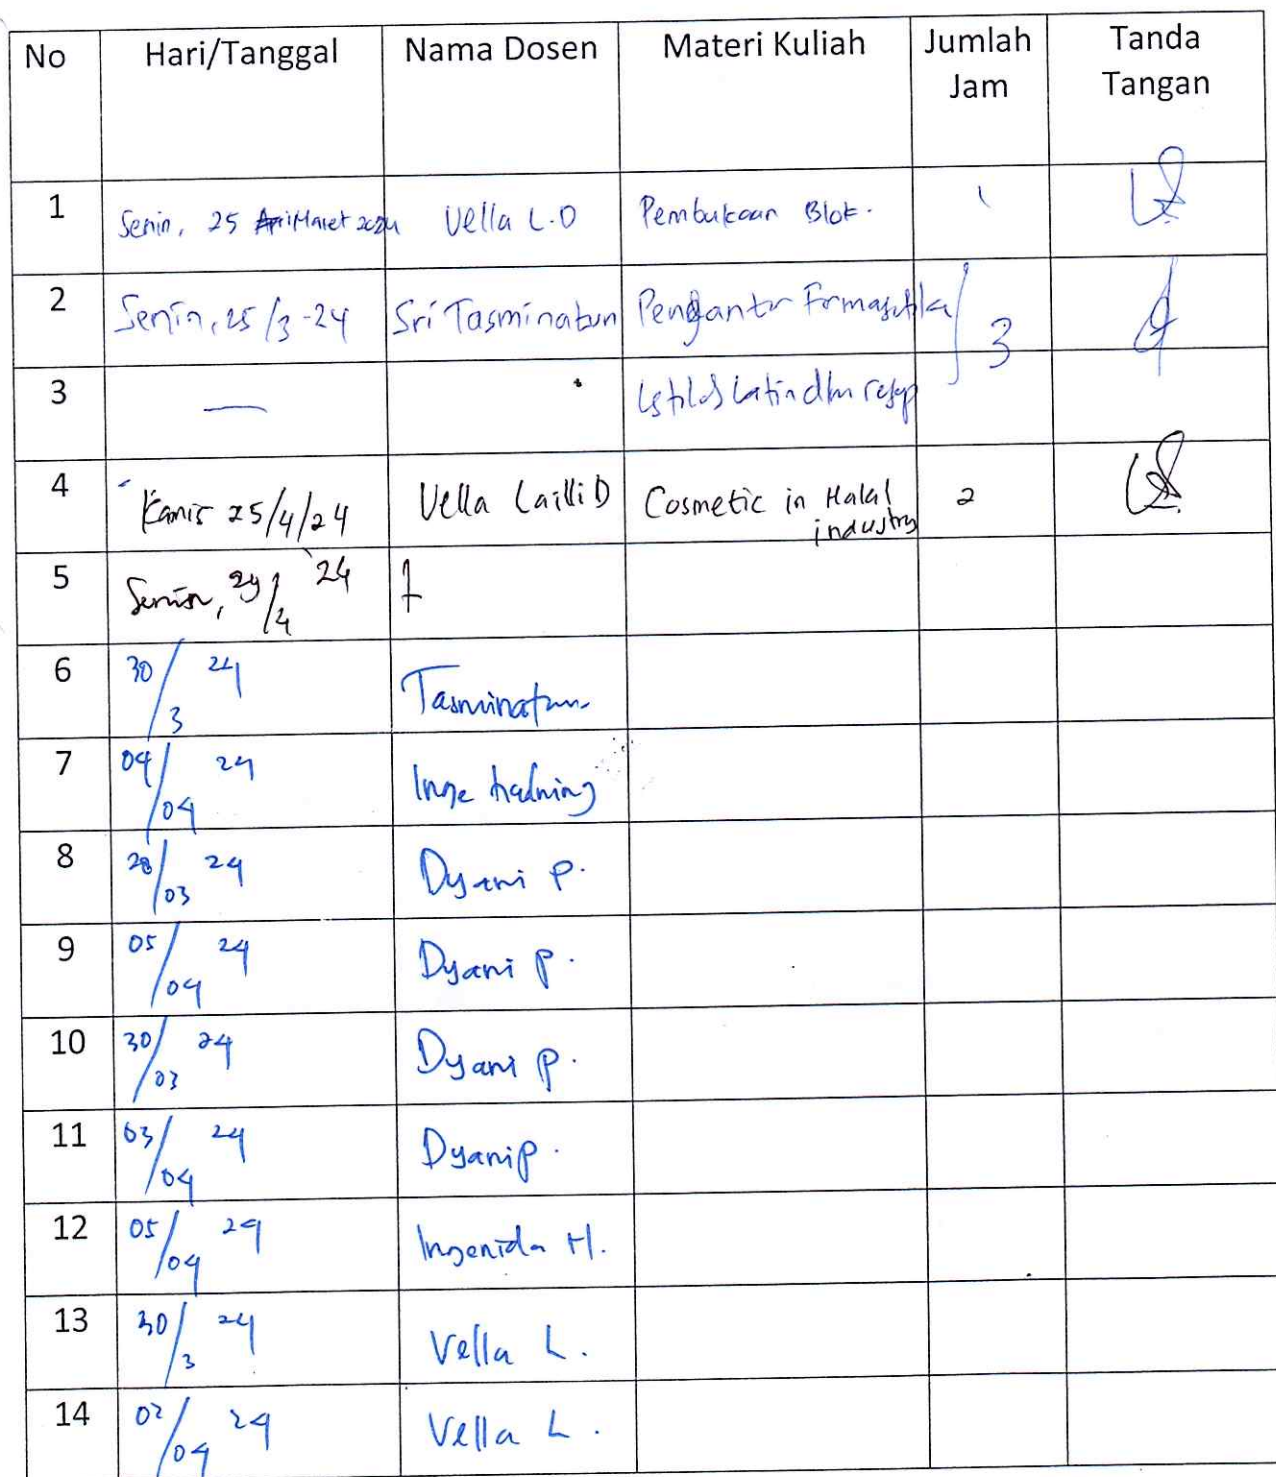 No Hari/Tanggal Nama Dosen Materi Kuliah Jumlah Jam Tanda Tangan
1 Senin, 25 Maret 2024 Vella L.D Pembukaan Blok. 1
2 Senin, 25/3-24 Sri Tasminatun Pengantar Farmasetika 3
3 — latin dlm resep
4 Kamis 25/4/24 Vella Lailli D Cosmetic in Halal industry 2
5 Senin, 29/4 24
6 30/3 24 Tasminatun
7 04/04 24 Inge
8 28/03 24 Dyani P.
9 05/04 24 Dyani P.
10 30/03 24 Dyani P.
11 03/04 24 Dyani P.
12 05/04 24 Ingenida H.
13 30/3 24 Vella L.
14 02/04 24 Vella L.